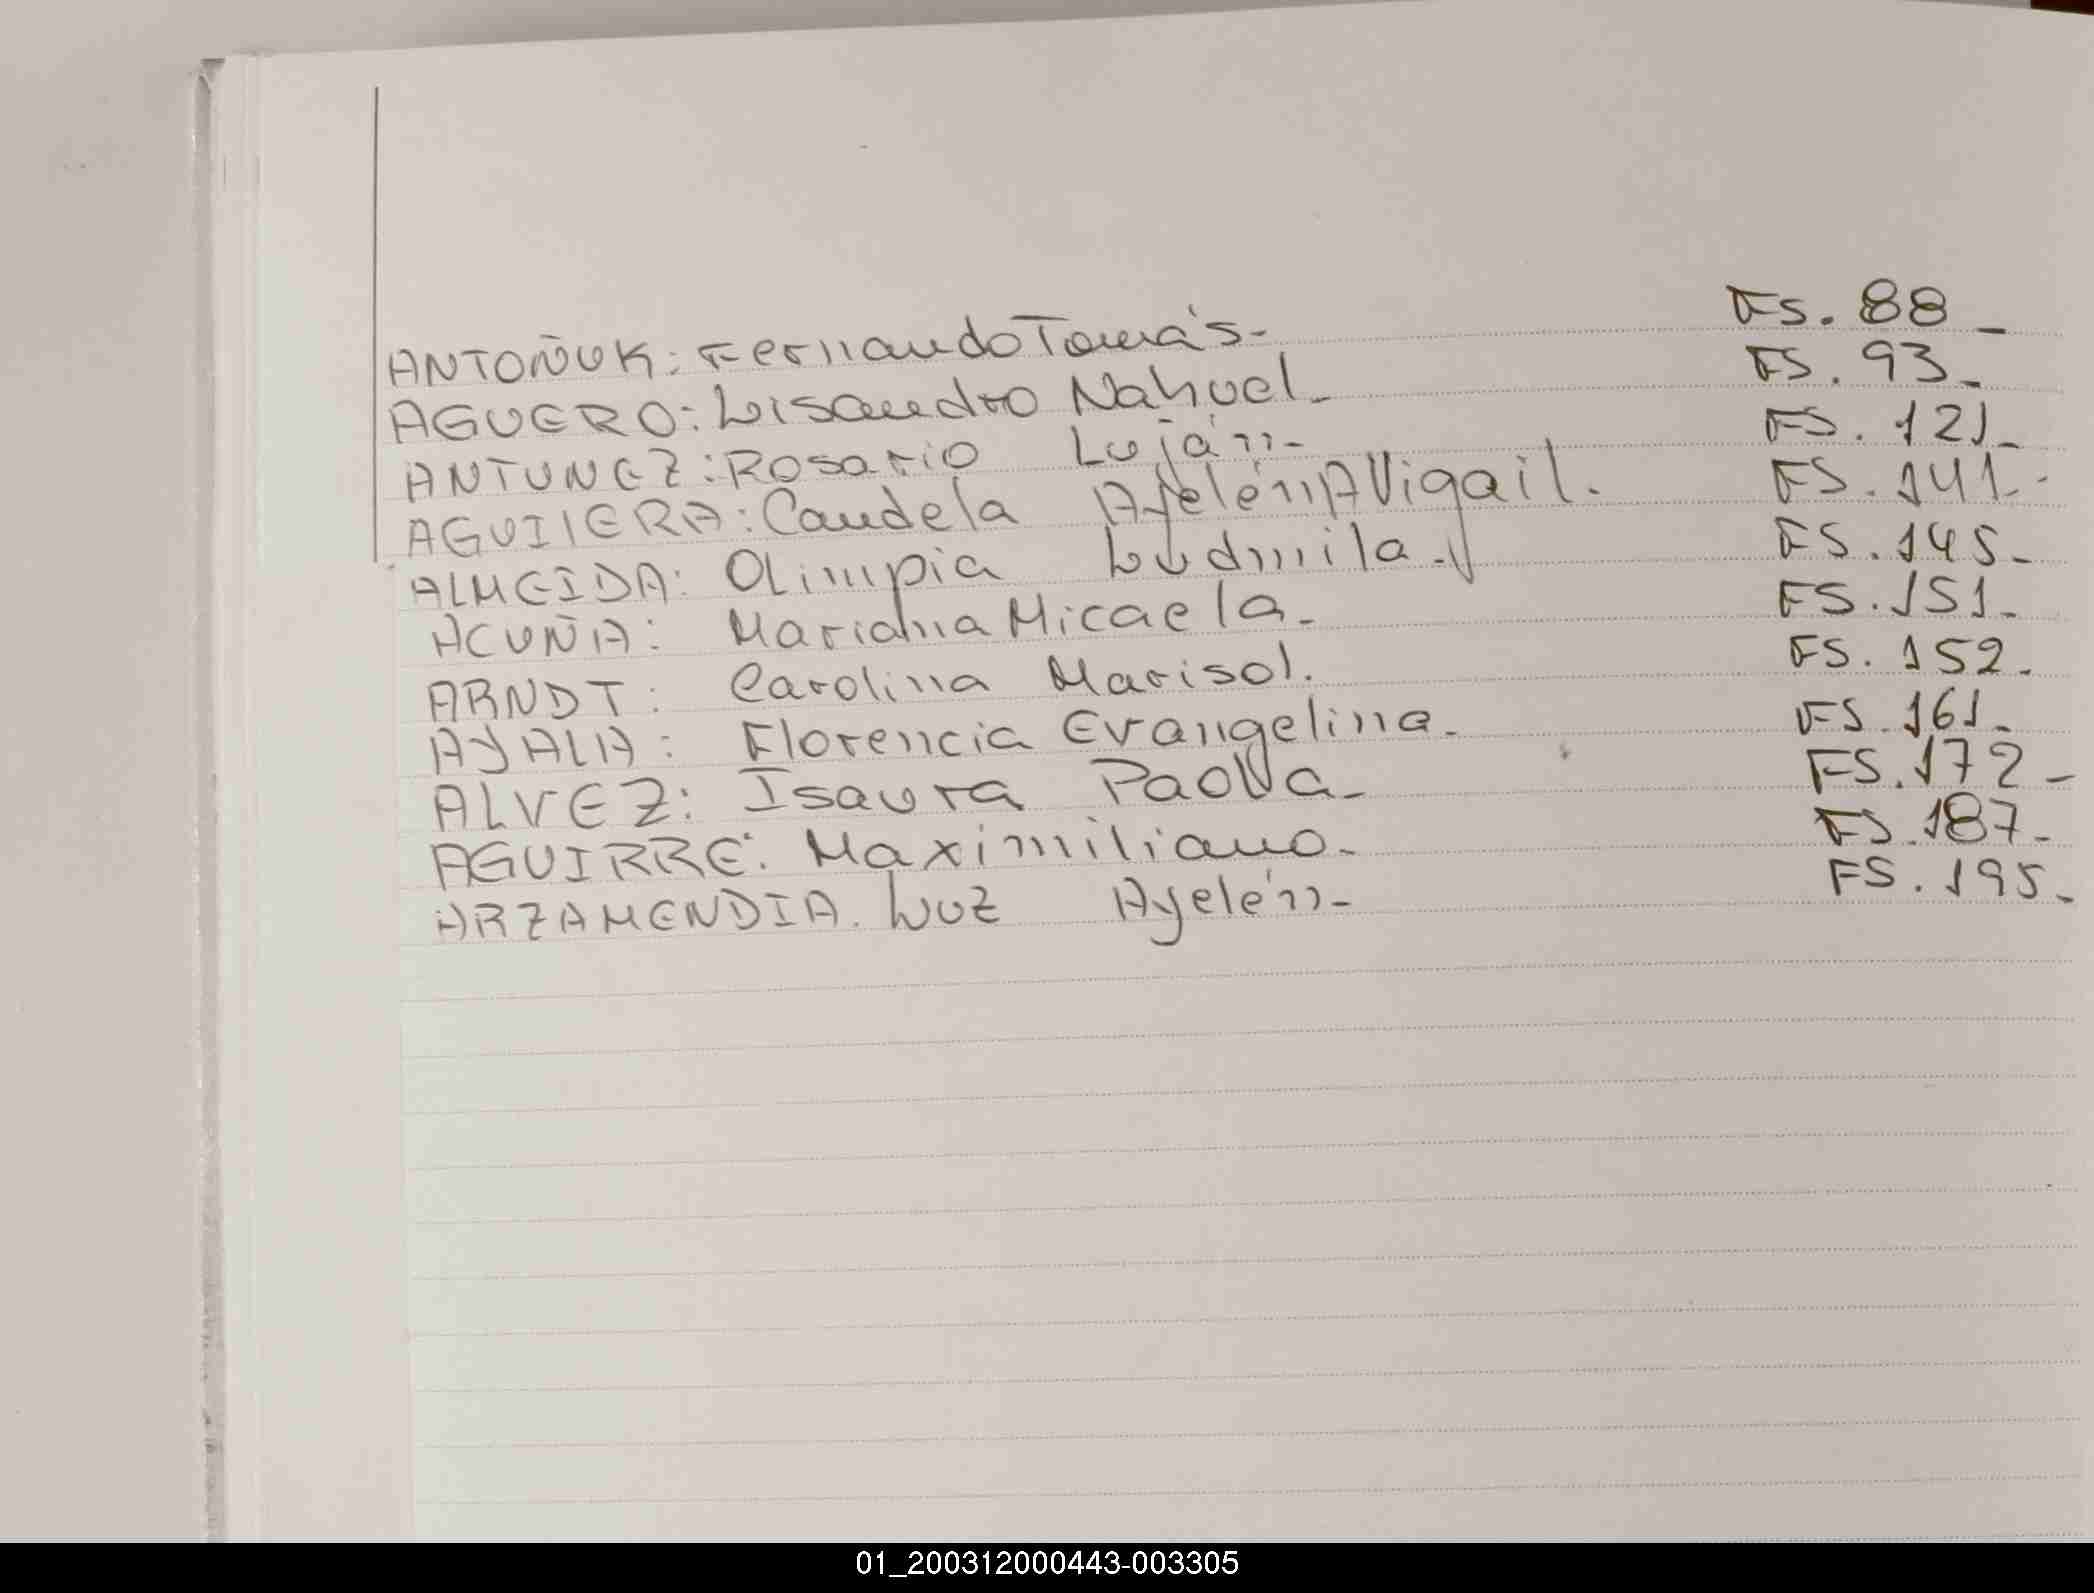 ANTOÑUK: Fernando Tomás- FS. 88-
AGUERO: Lisandro Nahuel- FS. 93-
ANTUNEZ: Rosario Luján- FS. 121-
AGUILERA: Candela Ayelén AVigail. FS. 141-
ALMEIDA: Olimpia Ludmila- FS. 145-
ACUÑA: Mariana Micaela- FS. 151-
ARNDT: Carolina Marisol. FS. 152-
AYALA: Florencia Evangelina- FS. 161-
ALVEZ: Isaura Paola- FS. 172-
AGUIRRE: Maximiliano- FS. 187-
ARZAMENDIA. Luz Ayelén- FS. 195-
01_200312000443-003305